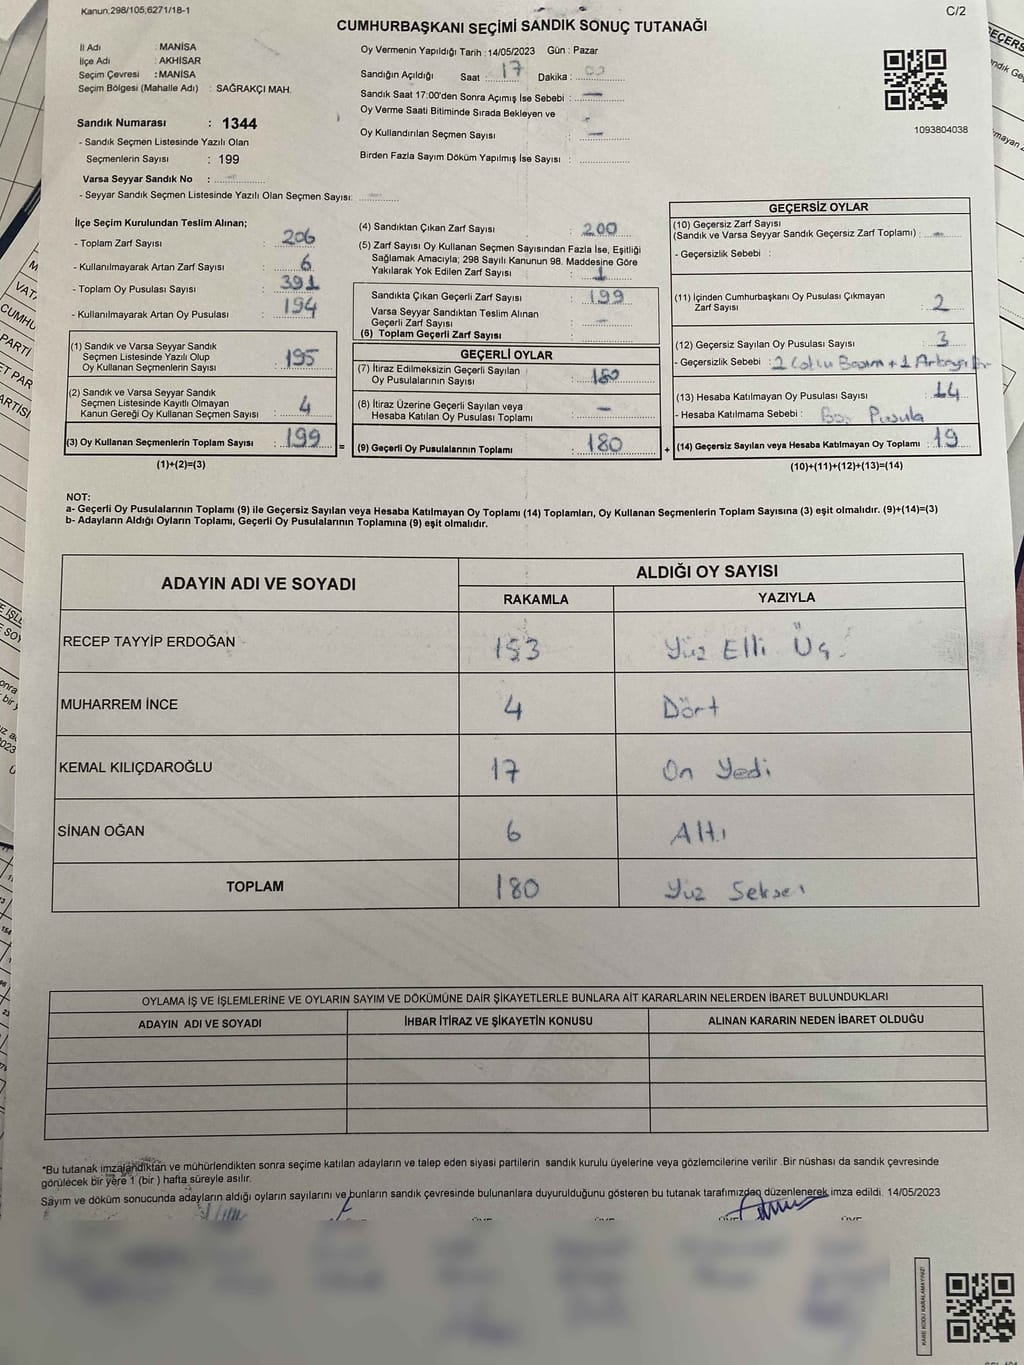 Kanun:298/105,6271/18-1
C/2
CUMHURBAŞKANI SEÇİMİ SANDIK SONUÇ TUTANAĞI
İl Adı : MANİSA
İlçe Adı : AKHİSAR
Seçim Çevresi : MANİSA
Seçim Bölgesi (Mahalle Adı) : SAĞRAKÇI MAH.
Sandık Numarası : 1344
- Sandık Seçmen Listesinde Yazılı Olan
Seçmenlerin Sayısı : 199
Varsa Seyyar Sandık No :
- Seyyar Sandık Seçmen Listesinde Yazılı Olan Seçmen Sayısı:
Oy Vermenin Yapıldığı Tarih : 14/05/2023 Gün : Pazar
Sandığın Açıldığı Saat : 17 Dakika : 00
Sandık Saat 17:00'den Sonra Açımış İse Sebebi : —
Oy Verme Saati Bitiminde Sırada Bekleyen ve
Oy Kullandırılan Seçmen Sayısı : —
Birden Fazla Sayım Döküm Yapılmış İse Sayısı :
1093804038
İlçe Seçim Kurulundan Teslim Alınan;
- Toplam Zarf Sayısı : 206
- Kullanılmayarak Artan Zarf Sayısı : 6
- Toplam Oy Pusulası Sayısı : 391
- Kullanılmayarak Artan Oy Pusulası : 194
(1) Sandık ve Varsa Seyyar Sandık
Seçmen Listesinde Yazılı Olup
Oy Kullanan Seçmenlerin Sayısı : 195
(2) Sandık ve Varsa Seyyar Sandık
Seçmen Listesinde Kayıtlı Olmayan
Kanun Gereği Oy Kullanan Seçmen Sayısı : 4
(3) Oy Kullanan Seçmenlerin Toplam Sayısı : 199
(1)+(2)=(3)
=
(4) Sandıktan Çıkan Zarf Sayısı : 200
(5) Zarf Sayısı Oy Kullanan Seçmen Sayısından Fazla İse, Eşitliği
Sağlamak Amacıyla; 298 Sayılı Kanunun 98. Maddesine Göre
Yakılarak Yok Edilen Zarf Sayısı : 1
Sandıkta Çıkan Geçerli Zarf Sayısı : 199
Varsa Seyyar Sandıktan Teslim Alınan
Geçerli Zarf Sayısı : —
(6) Toplam Geçerli Zarf Sayısı :
GEÇERLİ OYLAR
(7) İtiraz Edilmeksizin Geçerli Sayılan
Oy Pusulalarının Sayısı : 180
(8) İtiraz Üzerine Geçerli Sayılan veya
Hesaba Katılan Oy Pusulası Toplamı : —
(9) Geçerli Oy Pusulalarının Toplamı : 180
+
GEÇERSİZ OYLAR
(10) Geçersiz Zarf Sayısı
(Sandık ve Varsa Seyyar Sandık Geçersiz Zarf Toplamı) : —
- Geçersizlik Sebebi :
(11) İçinden Cumhurbaşkanı Oy Pusulası Çıkmayan
Zarf Sayısı : 2
(12) Geçersiz Sayılan Oy Pusulası Sayısı : 3
- Geçersizlik Sebebi : 2 + 1
(13) Hesaba Katılmayan Oy Pusulası Sayısı : 14
- Hesaba Katılmama Sebebi : Boş Pusula
(14) Geçersiz Sayılan veya Hesaba Katılmayan Oy Toplamı : 19
(10)+(11)+(12)+(13)=(14)
NOT:
a- Geçerli Oy Pusulalarının Toplamı (9) ile Geçersiz Sayılan veya Hesaba Katılmayan Oy Toplamı (14) Toplamları, Oy Kullanan Seçmenlerin Toplam Sayısına (3) eşit olmalıdır. (9)+(14)=(3)
b- Adayların Aldığı Oyların Toplamı, Geçerli Oy Pusulalarının Toplamına (9) eşit olmalıdır.
ADAYIN ADI VE SOYADI ALDIĞI OY SAYISI
RAKAMLA YAZIYLA
RECEP TAYYİP ERDOĞAN 153 Yüz Elli Üç
MUHARREM İNCE 4 Dört
KEMAL KILIÇDAROĞLU 17 On Yedi
SİNAN OĞAN 6 Altı
TOPLAM 180 Yüz Seksen
OYLAMA İŞ VE İŞLEMLERİNE VE OYLARIN SAYIM VE DÖKÜMÜNE DAİR ŞİKAYETLERLE BUNLARA AİT KARARLARIN NELERDEN İBARET BULUNDUKLARI
ADAYIN ADI VE SOYADI İHBAR İTİRAZ VE ŞİKAYETİN KONUSU ALINAN KARARIN NEDEN İBARET OLDUĞU
*Bu tutanak imzalandıktan ve mühürlendikten sonra seçime katılan adayların ve talep eden siyasi partilerin sandık kurulu üyelerine veya gözlemcilerine verilir .Bir nüshası da sandık çevresinde
görülecek bir yere 1 (bir ) hafta süreyle asılır.
Sayım ve döküm sonucunda adayların aldığı oyların sayılarını ve bunların sandık çevresinde bulunanlara duyurulduğunu gösteren bu tutanak tarafımızdan düzenlenerek imza edildi. 14/05/2023
KARE KODU KARALAMAYINIZ!